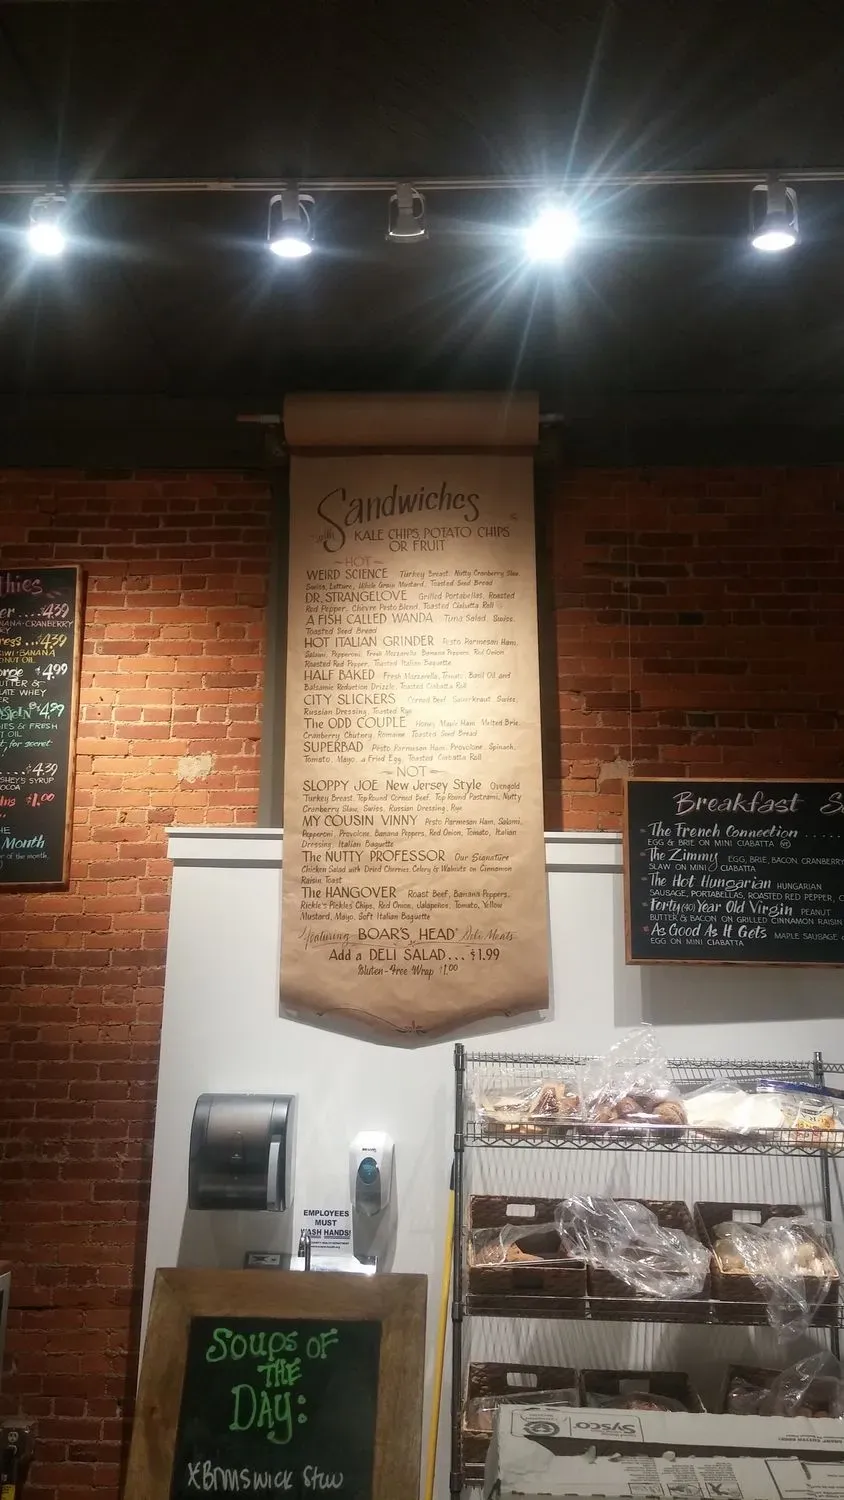 Sandwiches
with KALE CHIPS, POTATO CHIPS
OR FRUIT
HOT
WEIRD SCIENCE Turkey Breast, Nutty Cranberry Slaw,
Swiss, Lettuce, Whole Grain Mustard, Toasted Seed Bread
DR. STRANGELOVE Grilled Portabellas, Roasted
Red Pepper, Chevre Pesto Blend, Toasted Ciabatta Roll
A FISH CALLED WANDA Tuna Salad, Swiss,
Toasted Seed Bread
HOT ITALIAN GRINDER Pesto Parmesan Ham,
Salami, Pepperoni, Fresh Mozzarella, Banana Peppers, Red Onion
Roasted Red Pepper, Toasted Italian Baguette
HALF BAKED Fresh Mozzarella, Tomato, Basil Oil and
Balsamic Reduction Drizzle, Toasted Ciabatta Roll
CITY SLICKERS Corned Beef, Sauerkraut, Swiss,
Russian Dressing, Toasted Rye
The ODD COUPLE Honey Maple Ham, Melted Brie,
Cranberry Chutney, Romaine, Toasted Seed Bread
SUPERBAD Pesto Parmesan Ham, Provolone, Spinach,
Tomato, Mayo, a Fried Egg, Toasted Ciabatta Roll
NOT
SLOPPY JOE New Jersey Style Ovengold
Turkey Breast, Top Round Corned Beef, Top Round Pastrami, Nutty
Cranberry Slaw, Swiss, Russian Dressing, Rye
MY COUSIN VINNY Pesto Parmesan Ham, Salami,
Pepperoni, Provolone, Banana Peppers, Red Onion, Tomato, Italian
Dressing, Italian Baguette
The NUTTY PROFESSOR Our Signature
Chicken Salad with Dried Cherries, Celery & Walnuts on Cinnamon
Raisin Toast
The HANGOVER Roast Beef, Banana Peppers,
Rickle's Pickles Chips, Red Onion, Jalapeños, Tomato, Yellow
Mustard, Mayo, Soft Italian Baguette
Featuring BOAR'S HEAD Deli Meats
Add a DELI SALAD... $1.99
Gluten-Free Wrap $1.00
thies
er....$4.39
NANA·CRANBERRY
RY
regs...$4.39
KIWI·BANANA
NUT OIL
$4.99
UTTER &
LATE WHEY
ER
$4.79
IES & FRESH
T OIL
t, for secret
....$4.39
SHEY'S SYRUP
COCOA
$1.00
HE
Month
r of the month,
Breakfast S
The French Connection ......
EGG & BRIE ON MINI CIABATTA
The Zimmy EGG, BRIE, BACON, CRANBERRY
SLAW ON MINI CIABATTA
The Hot Hungarian HUNGARIAN
SAUSAGE, PORTABELLAS, ROASTED RED PEPPER, C
Forty (40) Year Old Virgin PEANUT
BUTTER & BACON ON GRILLED CINNAMON RAISIN
As Good As It Gets MAPLE SAUSAGE
EGG ON MINI CIABATTA
EMPLOYEES
MUST
WASH HANDS!
Soups OF
THE
DAY:
XBrunswick Stew
Sysco